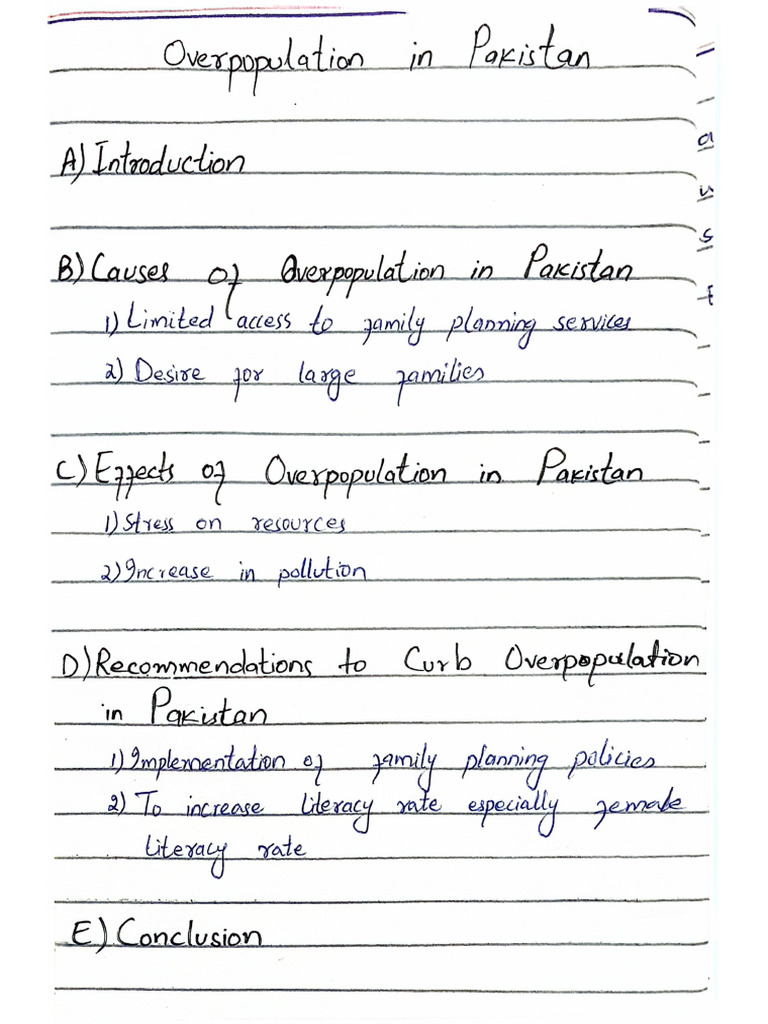 Overpopulation in Pakistan
A) Introduction
B) Causes of Overpopulation in Pakistan
1) Limited access to family planning services
2) Desire for large families
C) Effects of Overpopulation in Pakistan
1) Stress on resources
2) Increase in pollution
D) Recommendations to Curb Overpopulation
in Pakistan
1) Implementation of family planning policies
2) To increase literacy rate especially female
literacy rate
E) Conclusion